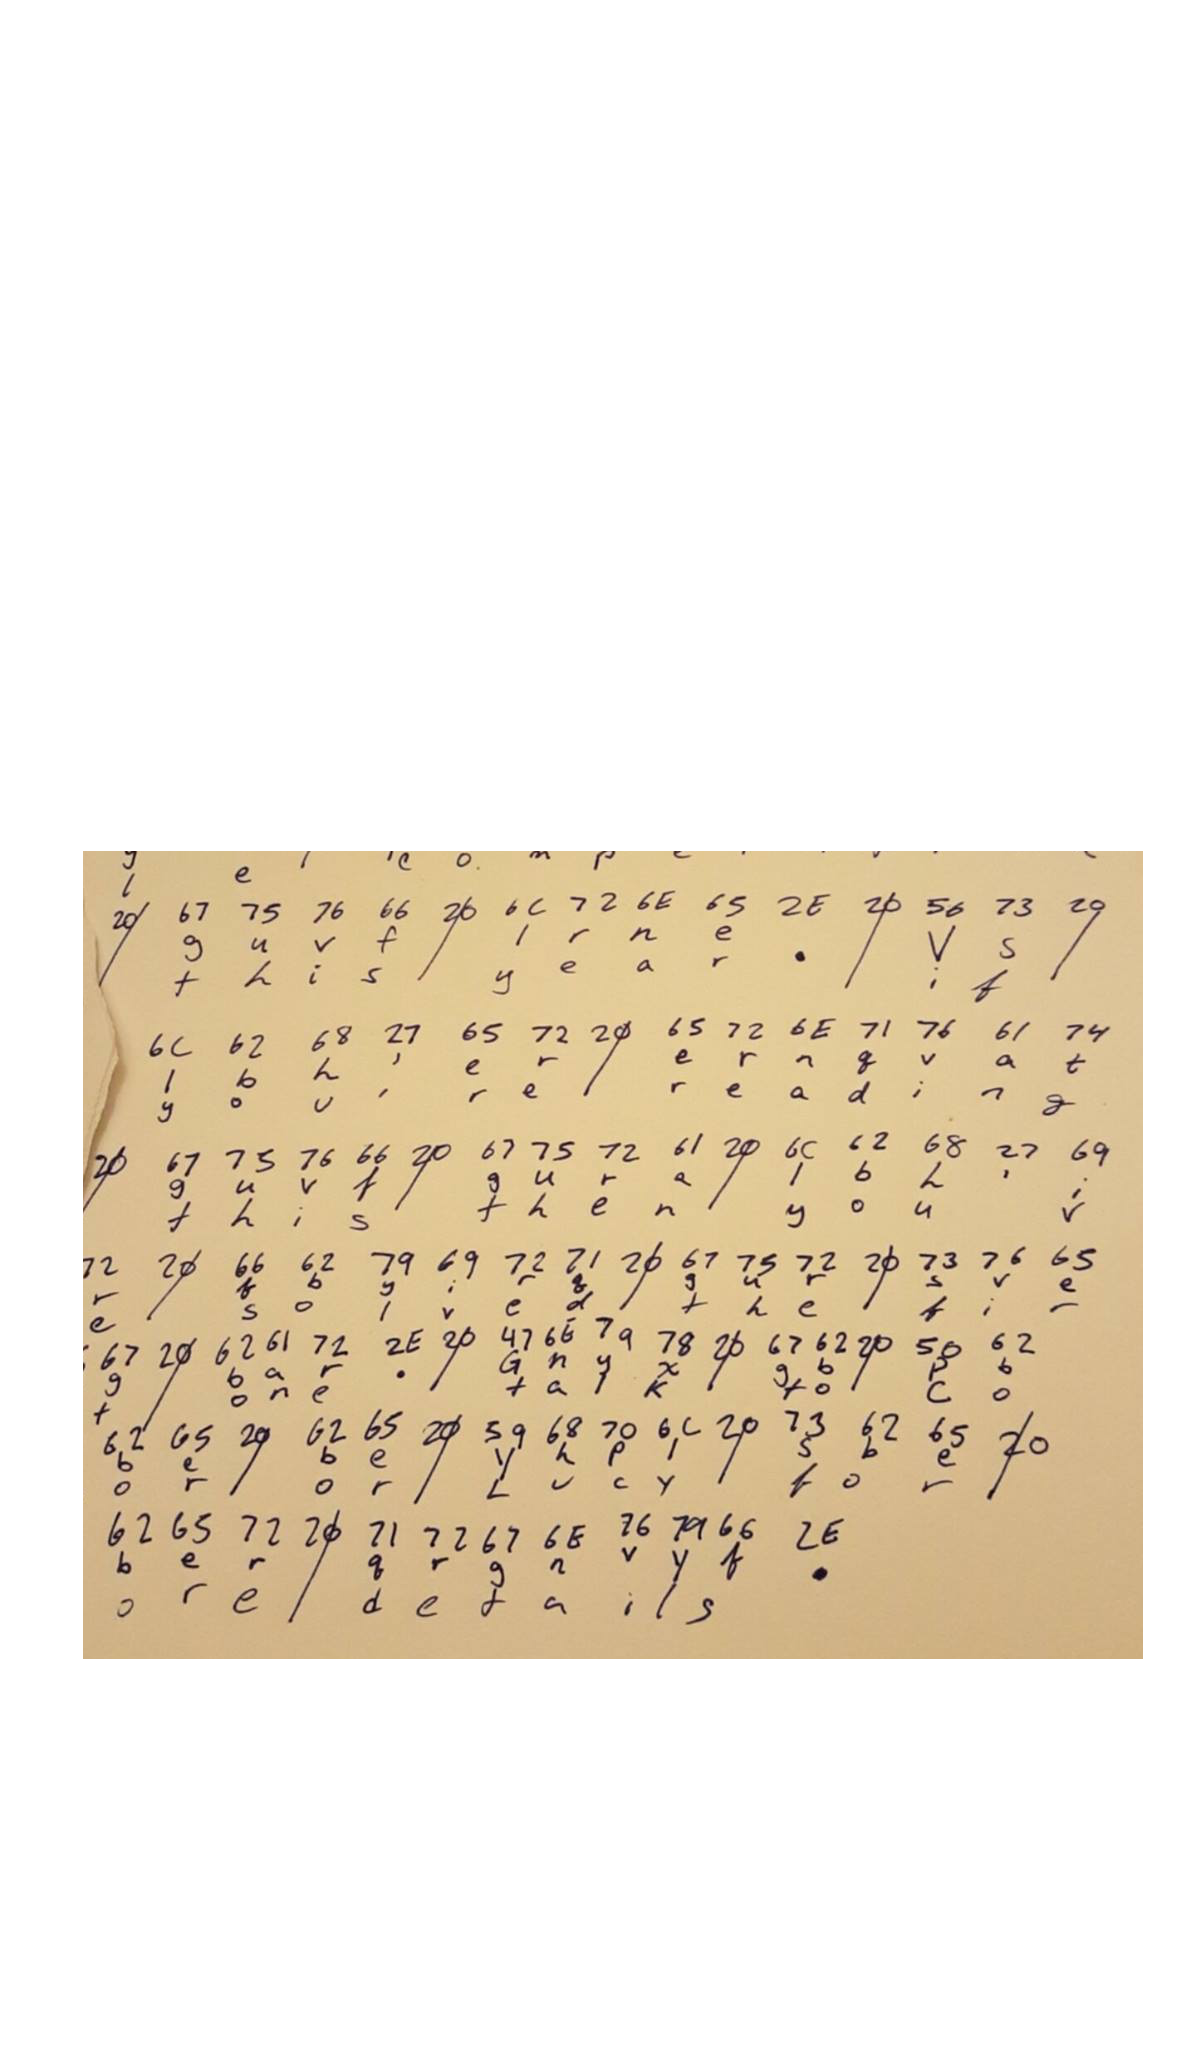 l e
20 67 75 76 66 20 6C 72 6E 65 2E 20 56 73 29
g u v f l r n e . V s
t h i s y e a r i f
6C 62 68 27 65 72 20 65 72 6E 71 76 61 74
l b h ' e r e r n q v a t
y o u ' r e r e a d i n g
20 67 75 76 66 20 67 75 72 61 20 6C 62 68 27 69
g u v f g u r a l b h ' i
t h i s t h e n y o u v
72 20 66 62 79 69 72 71 20 67 75 72 20 73 76 65
r f b y i r q g u r s v e
e s o l v e d t h e f i r
67 20 62 61 72 2E 20 47 6E 79 78 20 67 62 20 50 62
g b a r . G n y x g b P b
t o n e t a l k t o C o
62 65 20 62 65 20 59 68 70 6C 20 73 62 65 20
b e b e Y h p l s b e
o r o r L u c y f o r
62 65 72 20 71 72 67 6E 76 79 66 2E
b e r q r g n v y f .
o r e d e t a i l s